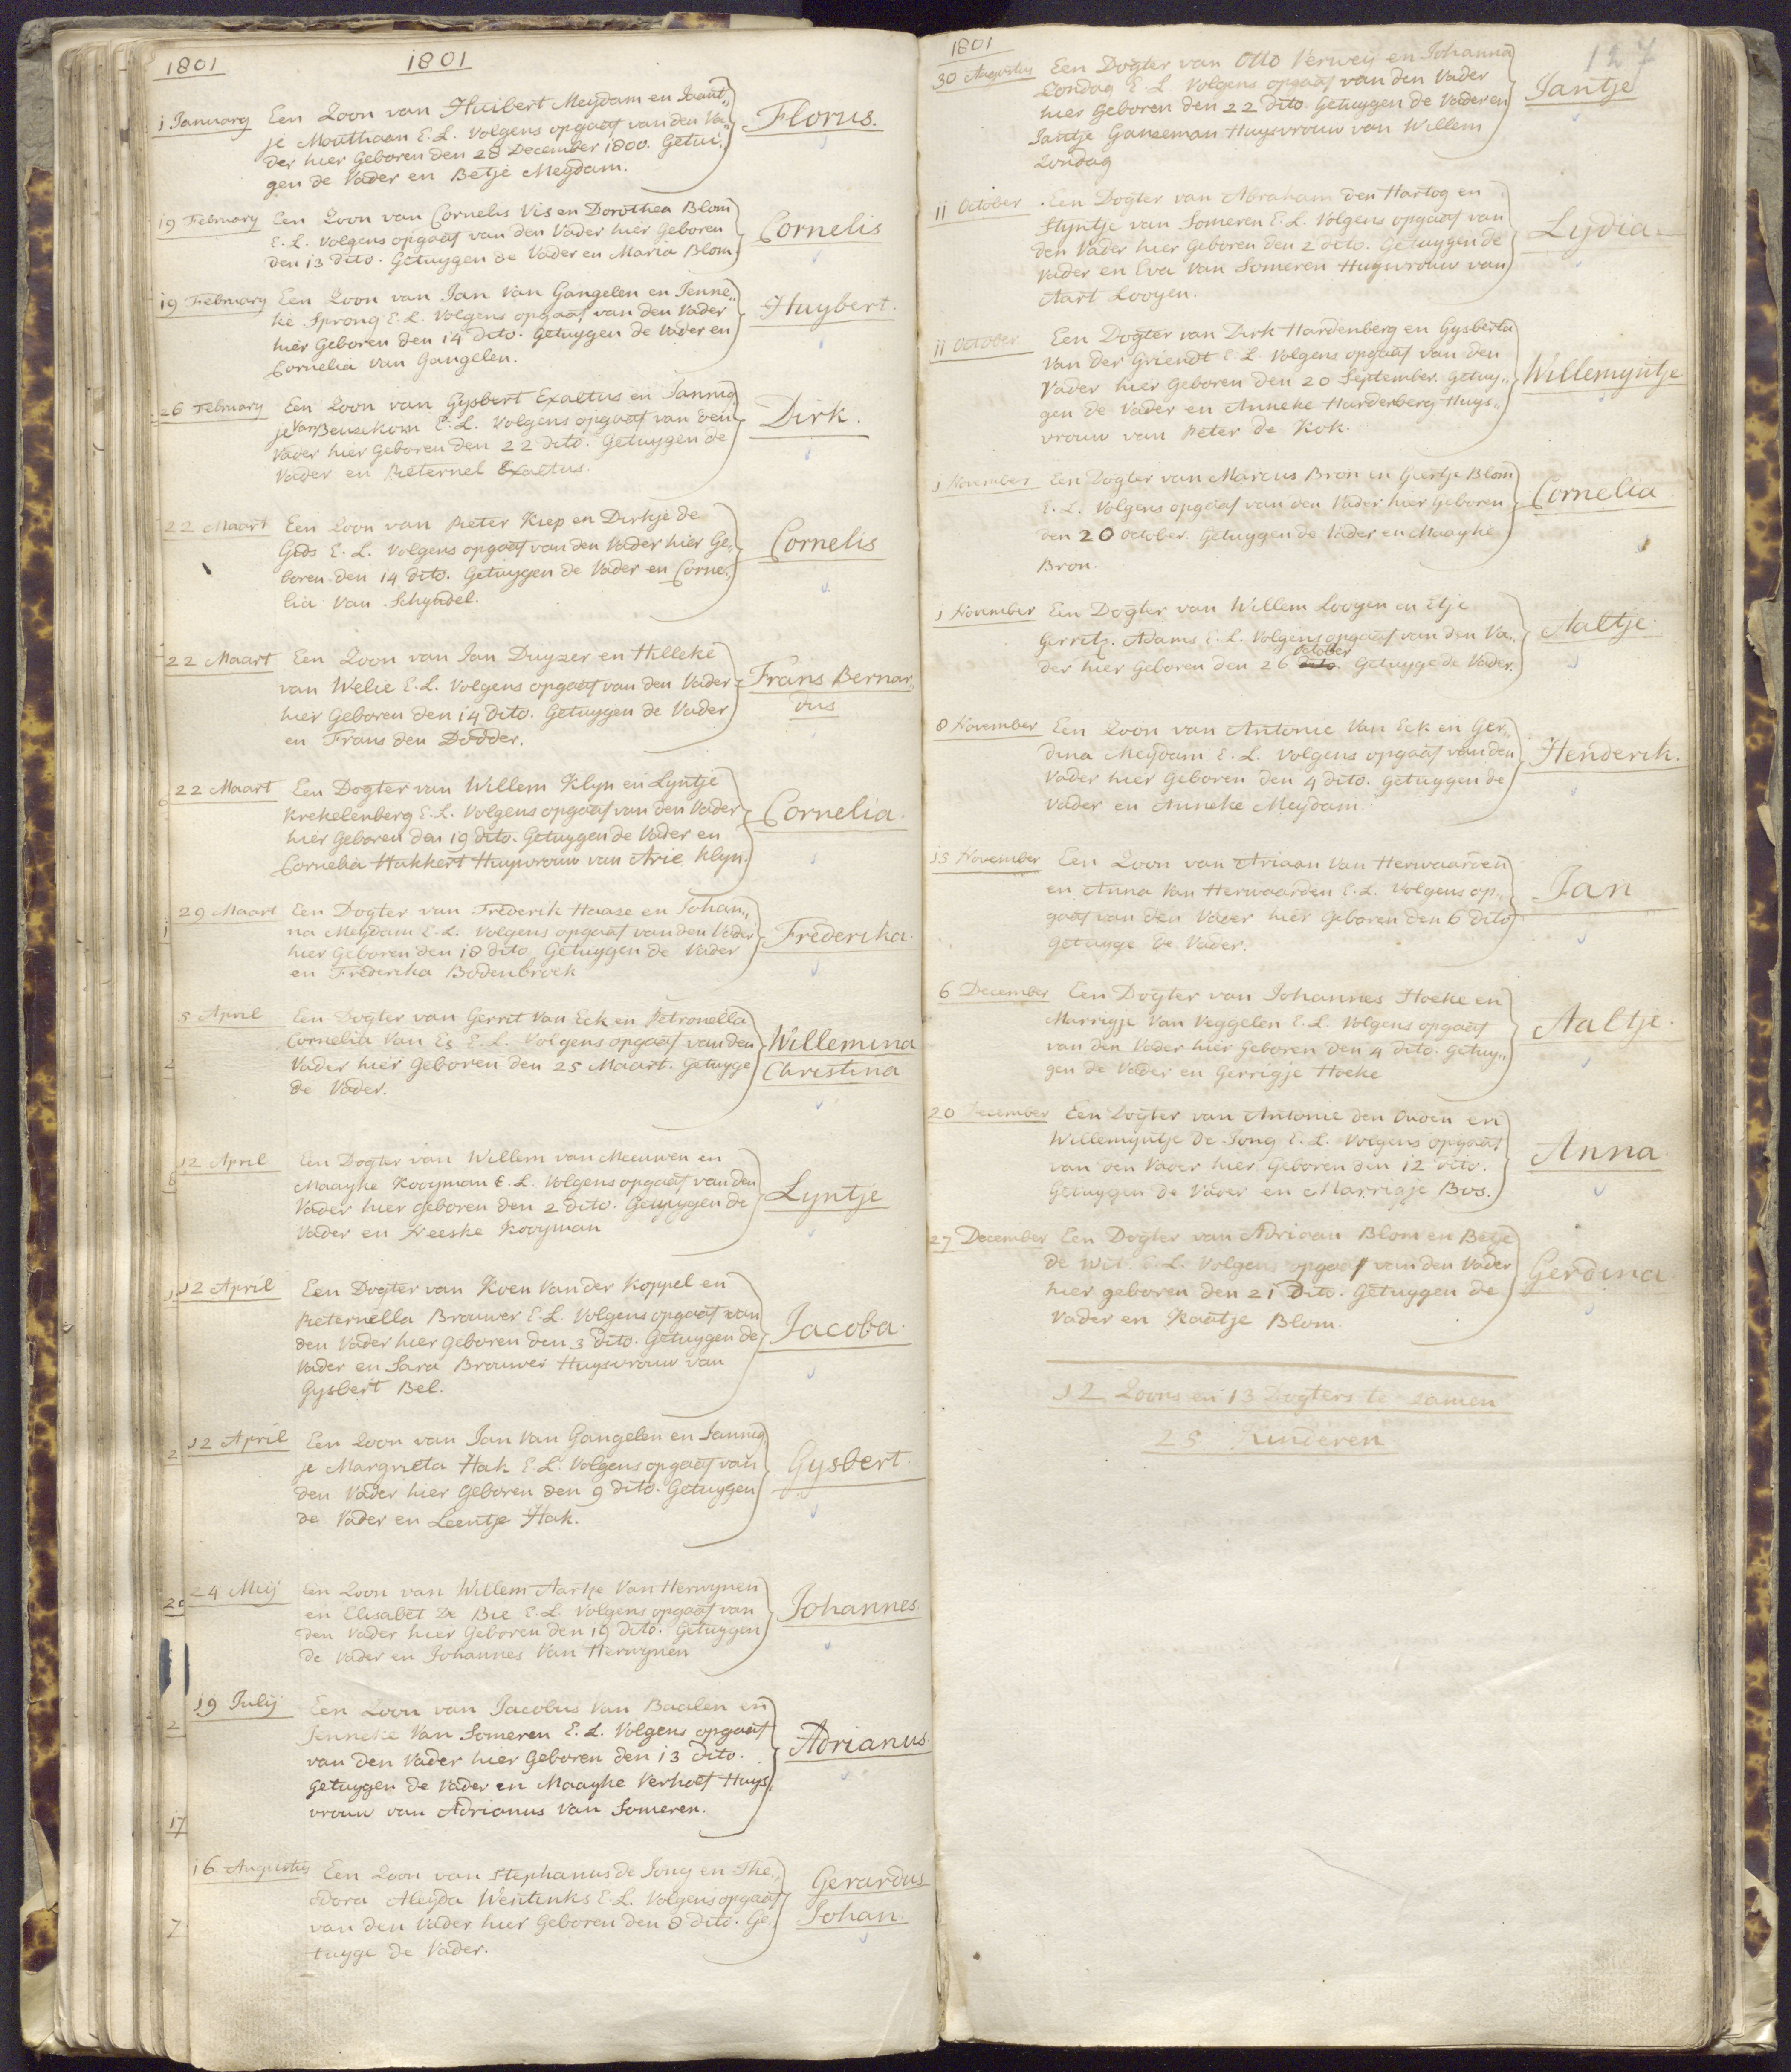 1801
1801
1 January Een Zoon van Huibert Meydam en Jaant„
je Mouthaan E. L. Volgens opgaaf van den Va„
der hier Geboren den 28 December 1800. Getui„
gen de Vader en Betje Meydam.
Florus.
19 February Een Zoon van Cornelis Vis en Dorothea Blom
E. L. Volgens opgaaf van den Vader hier Geboren
den 13 dito. Getuygen de Vader en Maria Blom
Cornelis
19 February Een Zoon van Jan Van Gangelen en Jenne„
ke Sprong E. L. Volgens opgaaf van den Vader
hier Geboren den 14 dito. Getuygen de Vader en
Cornelia Van Gangelen.
Huybert.
26 February Een Zoon van Gysbert Exaltus en Jannig
je Van Beusekom E. L. Volgens opgaaf van den
Vader hier Geboren den 22 dito. Getuygen de
Vader en Pieternel Exaltus.
Dirk.
22 Maart Een Zoon van Pieter Kiep en Dirkje de
Gids E. L. Volgens opgaaf van den Vader hier Ge„
boren den 14 dito. Getuygen de Vader en Corne„
lia Van Schyndel.
Cornelis
22 Maart Een Zoon van Jan Duyzer en Hilleke
van Welie E. L. Volgens opgaaf van den Vader
hier Geboren den 14 dito. Getuygen de Vader
en Frans den Dodder.
Frans Bernar„
dus
22 Maart Een Dogter van Willem Klyn en Lyntje
Krekelenberg E. L. Volgens opgaaf van den Vader
hier Geboren den 19 dito. Getuygen de Vader en
Cornelia Hakkert Huysvrouw van Arie Klyn.
Cornelia.
29 Maart Een Dogter van Frederik Haase en Johan„
na Meydam E. L. Volgens opgaaf van den Vader
hier Geboren den 18 dito. Getuygen de Vader
en Frederika Bodenbroek
Frederika.
5 April Een Dogter van Gerrit Van Eck en Petronella
Cornelia Van Es E. L. Volgens opgaaf van den
Vader hier Geboren den 25 Maart. Getuyge
de Vader.
Willemina
Christina
12 April Een Dogter van Willem van Meeuwen en
Maayke Kooyman E. L. Volgens opgaaf van den
Vader hier Geboren den 2 dito. Getuygen de
Vader en Kooyman
Lyntje
12 April Een Dogter van Koen Van der Koppel en
Pieternella Brouwer E. L. Volgens opgaaf van
den Vader hier Geboren den 3 dito. Getuygen de
Vader en Sara Brouwer Huysvrouw van
Gysbert Bel.
Jacoba.
12 April Een Zoon van Jan Van Gangelen en Jannig
je Margrieta Hak E. L. Volgens opgaaf van
den Vader hier Geboren den 9 dito. Getuygen
de Vader en Leentje Hak.
Gysbert.
24 Meij Een Zoon van Willem Aartje Van Herwynen
en Elisabet De Bie E. L. Volgens opgaaf van
den Vader hier Geboren den 19 dito. Getuygen
de Vader en Johannes Van Herwynen
Johannes
19 Julij Een Zoon van Jacobus Van Baalen en
Jenneke Van Someren E. L. Volgens opgaaf
van den Vader hier Geboren den 13 dito.
Getuygen de Vader en Maayke Verhoef Huys„
vrouw van Adrianus Van Someren.
Adrianus.
16 Augustus Een Zoon van Stephanus de Jong en The„
dora Aleyda Wentinks E. L. Volgens opgaaf
van den Vader hier Geboren den 8 dito. Ge„
tuyge de Vader.
Gerardus
Johan.
1801
127
30 Augustus Een Dogter van Otto Verweij en Johanna
Zondag E. L. Volgens opgaaf van den Vader
hier Geboren den 22 dito. Getuygen de Vader en
Jantje Ganseman Huysvrouw van Willem
Zondag
Jantje
11 October Een Dogter van Abraham den Hartog en
Styntje van Someren E. L. Volgens opgaaf van
den Vader hier Geboren den 2 dito. Getuygen de
Vader en Eva Van Someren Huysvrouw van
Aart Looyen.
Lydia.
11 October Een Dogter van Dirk Hardenberg en Gysberta
Van der Griendt E. L. Volgens opgaaf van den
Vader hier Geboren den 20 September. Getuy„
gen de Vader en Anneke Hardenberg Huys„
vrouw van Peter de Kok.
Willemyntje
1 November Een Dogter van Marcus Bron en Geertje Blom
E. L. Volgens opgaaf van den Vader hier Geboren
den 20 October. Getuygen de Vader en Maayke
Bron.
Cornelia
1 November Een Dogter van Willem Looyen en Etje
Gerritz. Adams E. L. Volgens opgaaf van den Va„
der hier Geboren den 26 dito. October Getuyge de Vader.
Aaltje.
8 November Een Zoon van Antonie Van Eck en Ger„
dina Meydam E. L. Volgens opgaaf van den
Vader hier Geboren den 4 dito. Getuygen de
Vader en Anneke Meydam.
Henderik.
15 November Een Zoon van Ariaan Van Herwaarden
en Anna Van Herwaarden E. L. Volgens op„
gaaf van den Vader hier Geboren den 6 dito
Getuyge de Vader.
Jan
6 December Een Dogter van Johannes Hoeke en
Marrigje Van Veggelen E. L. Volgens opgaaf
van den Vader hier Geboren den 4 dito. Getuy„
gen de Vader en Gerrigje Hoeke
Aaltje.
20 December Een Dogter van Antonie den Ouden en
Willemyntje de Jong E. L. Volgens opgaaf
van den Vader hier Geboren den 12 dito.
Getuygen de Vader en Marrigje Bos.
Anna
27 December Een Dogter van Adriaan Blom en Betje
de Wit E. L. Volgens opgaaf van den Vader
hier geboren den 21 Dito. Getuygen de
Vader en Kaatje Blom.
Gerdina
12 Zoons en 13 Dogters te zamen
25 Kinderen